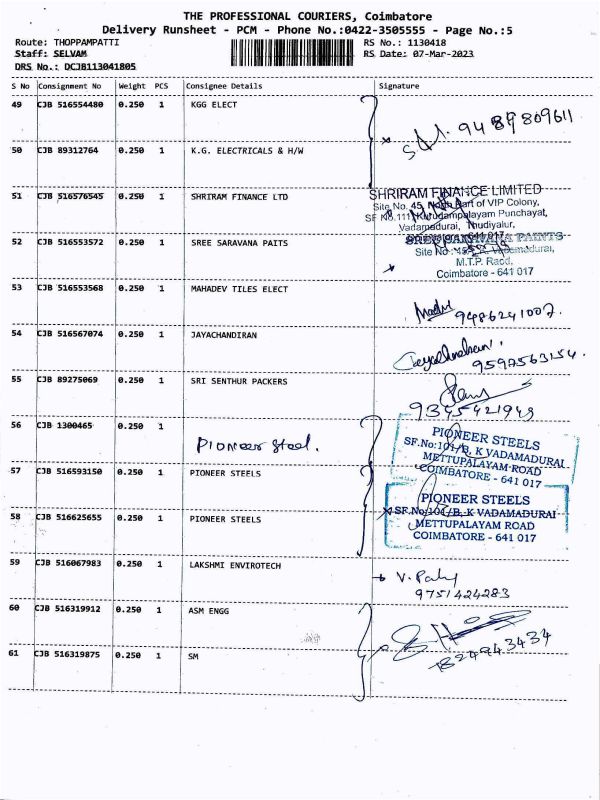 THE PROFESSIONAL COURIERS, Coimbatore
Delivery Runsheet - PCM - Phone No.:0422-3505555 - Page No.:5
Route: THOPPAMPATTI RS No.: 1130418
Staff: SELVAM RS Date: 07-Mar-2023
DRS No.: DCJB113041805
S No Consignment No Weight PCS Consignee Details Signature
49 CJB 516554480 0.250 1 KGG ELECT
9489809611
50 CJB 89312764 0.250 1 K.G. ELECTRICALS & H/W
51 CJB 516576545 0.250 1 SHRIRAM FINANCE LTD
SHRIRAM FINANCE LIMITED
Site No. 45, North Part of VIP Colony,
SF No.111, Kurudampalayam Punchayat,
Vadamadurai, Thudiyalur,
641 017
52 CJB 516553572 0.250 1 SREE SARAVANA PAITS
SREE SARAVANA PAINTS
Site No Vadamadurai,
M.T.P. Raod,
Coimbatore - 641 017
53 CJB 516553568 0.250 1 MAHADEV TILES ELECT
9486241007.
54 CJB 516567074 0.250 1 JAYACHANDIRAN
9597563154.
55 CJB 89275069 0.250 1 SRI SENTHUR PACKERS
9345421949
56 CJB 1300465 0.250 1
Pioneer Steel.
PIONEER STEELS
SF.No:101/B, K VADAMADURAI
METTUPALAYAM ROAD
COIMBATORE - 641 017
57 CJB 516593150 0.250 1 PIONEER STEELS
PIONEER STEELS
SF.No:101/B, K VADAMADURAI
METTUPALAYAM ROAD
COIMBATORE - 641 017
58 CJB 516625655 0.250 1 PIONEER STEELS
59 CJB 516067983 0.250 1 LAKSHMI ENVIROTECH
9751424283
60 CJB 516319912 0.250 1 ASM ENGG
61 CJB 516319875 0.250 1 SM